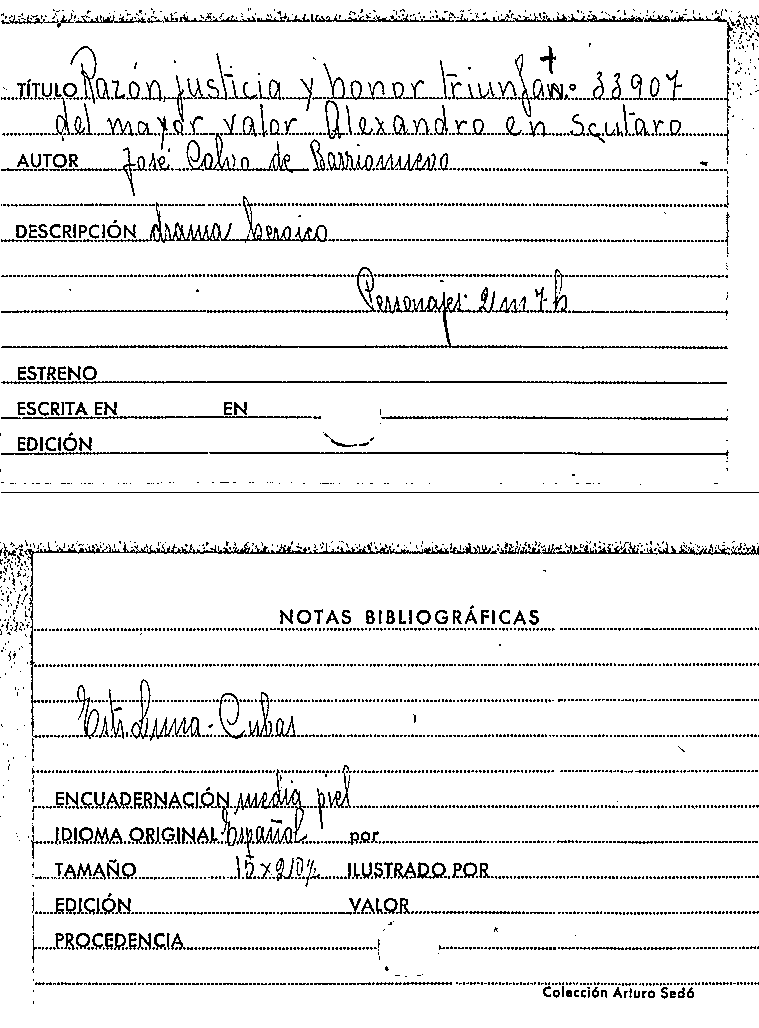 TÍTULO Razón, justicia y honor triunfan N.º 33907
del mayor valor Alexandro en Scutaro
AUTOR José Calvo de Barrionuevo
DESCRIPCIÓN drama heroico
Personajes: 2 m 7 h
ESTRENO
ESCRITA EN EN
EDICIÓN
NOTAS BIBLIOGRÁFICAS
Luna - Cubas
ENCUADERNACIÓN media piel
IDIOMA ORIGINAL Español por
TAMAÑO 15 x 210 ILUSTRADO POR
EDICIÓN VALOR
PROCEDENCIA
Colección Arturo Sedó